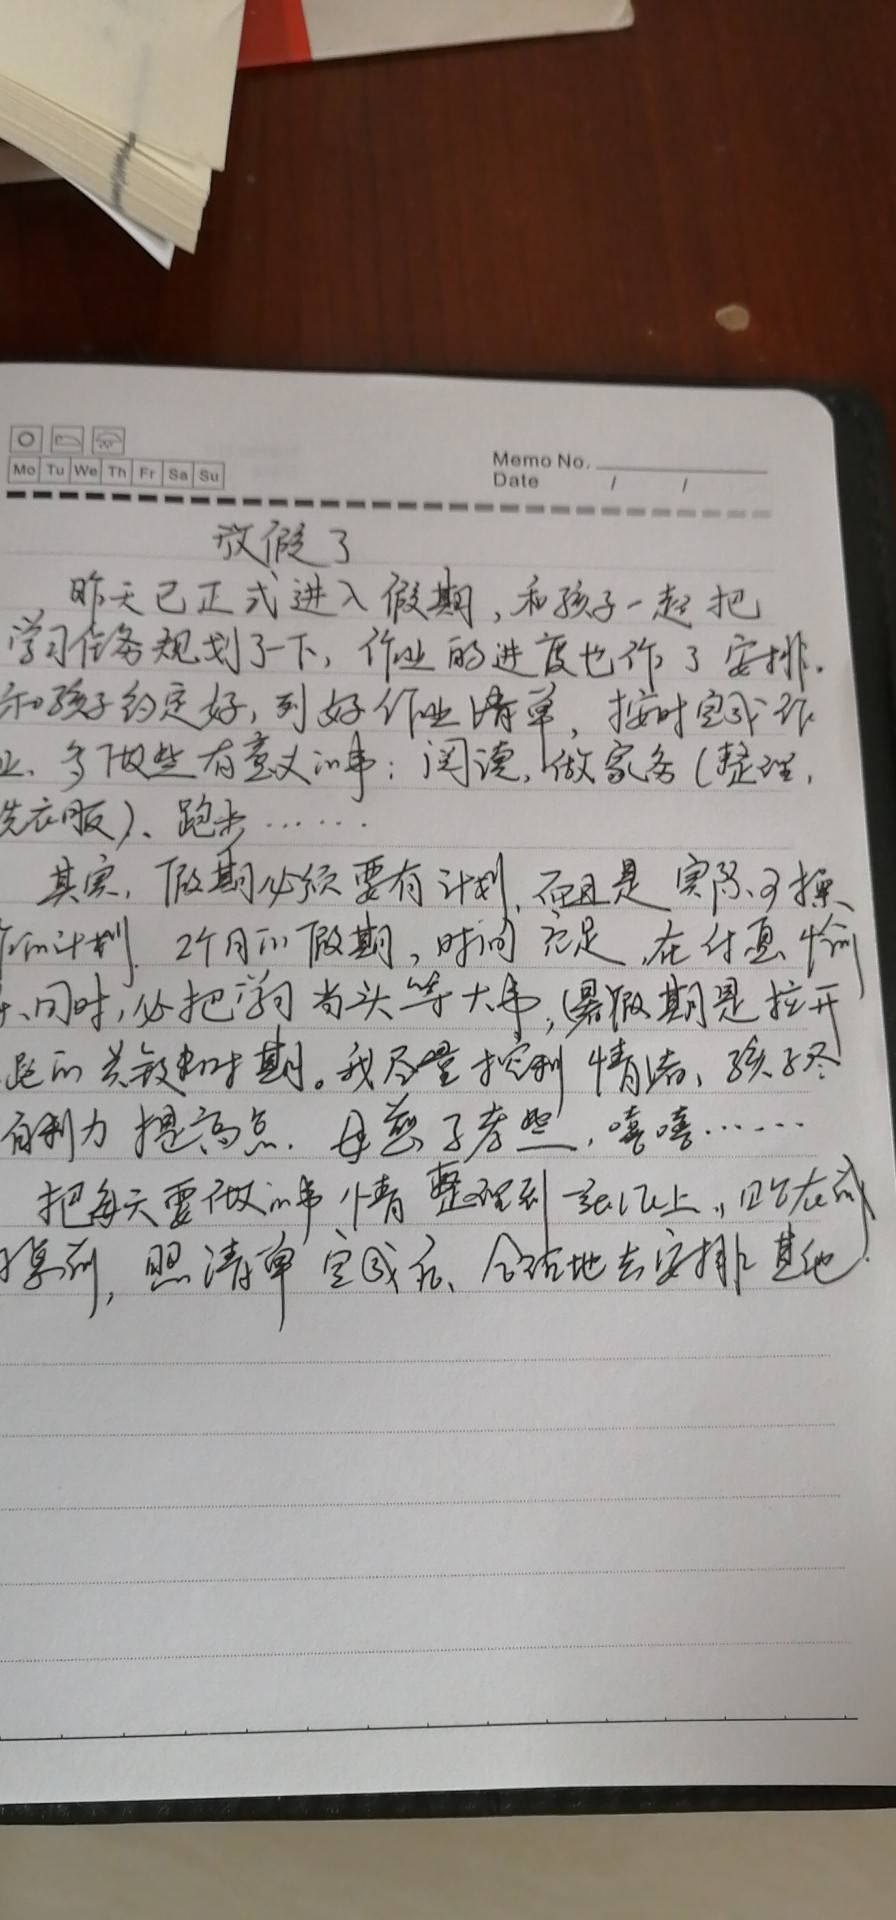 Mo Tu We Th Fr Sa Su
Memo No.
Date / /
放假了
昨天已正式进入假期,和孩子一起把
学习任务规划了一下,作业的进度也作了安排.
和孩子约定好,列好作业清单,按时完成作
业、多做些有意义的事:阅读,做家务(整理,
洗衣服)、跑步……
其实,假期必须要有计划,而且是实际可操
作的计划.2个月的假期,时间充足,在付惠
同时,必把学习当头等大事,暑假期是拉开
距的关键时期。我尽量控制情绪、孩子尽
自制力提高点.母慈子孝些,嘻嘻……
把每天要做的事情整理到 上,贴在
,照清单完成后、合理地去安排其他.